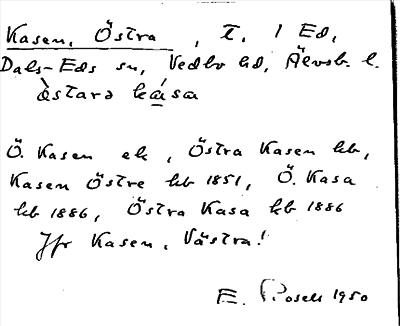 Kasen, Östra, t. i Ed,
Dals-Eds sn, Vedbo hd, Älvsb. l.
àstarə ká̱sa
Ö. Kasen ek, Östra Kasen kb,
Kasen Östre kb 1851, Ö. Kasa
kb 1886, Östra Kasa kb 1886
Jfr Kasen, Västra!
E. Rosell 1950